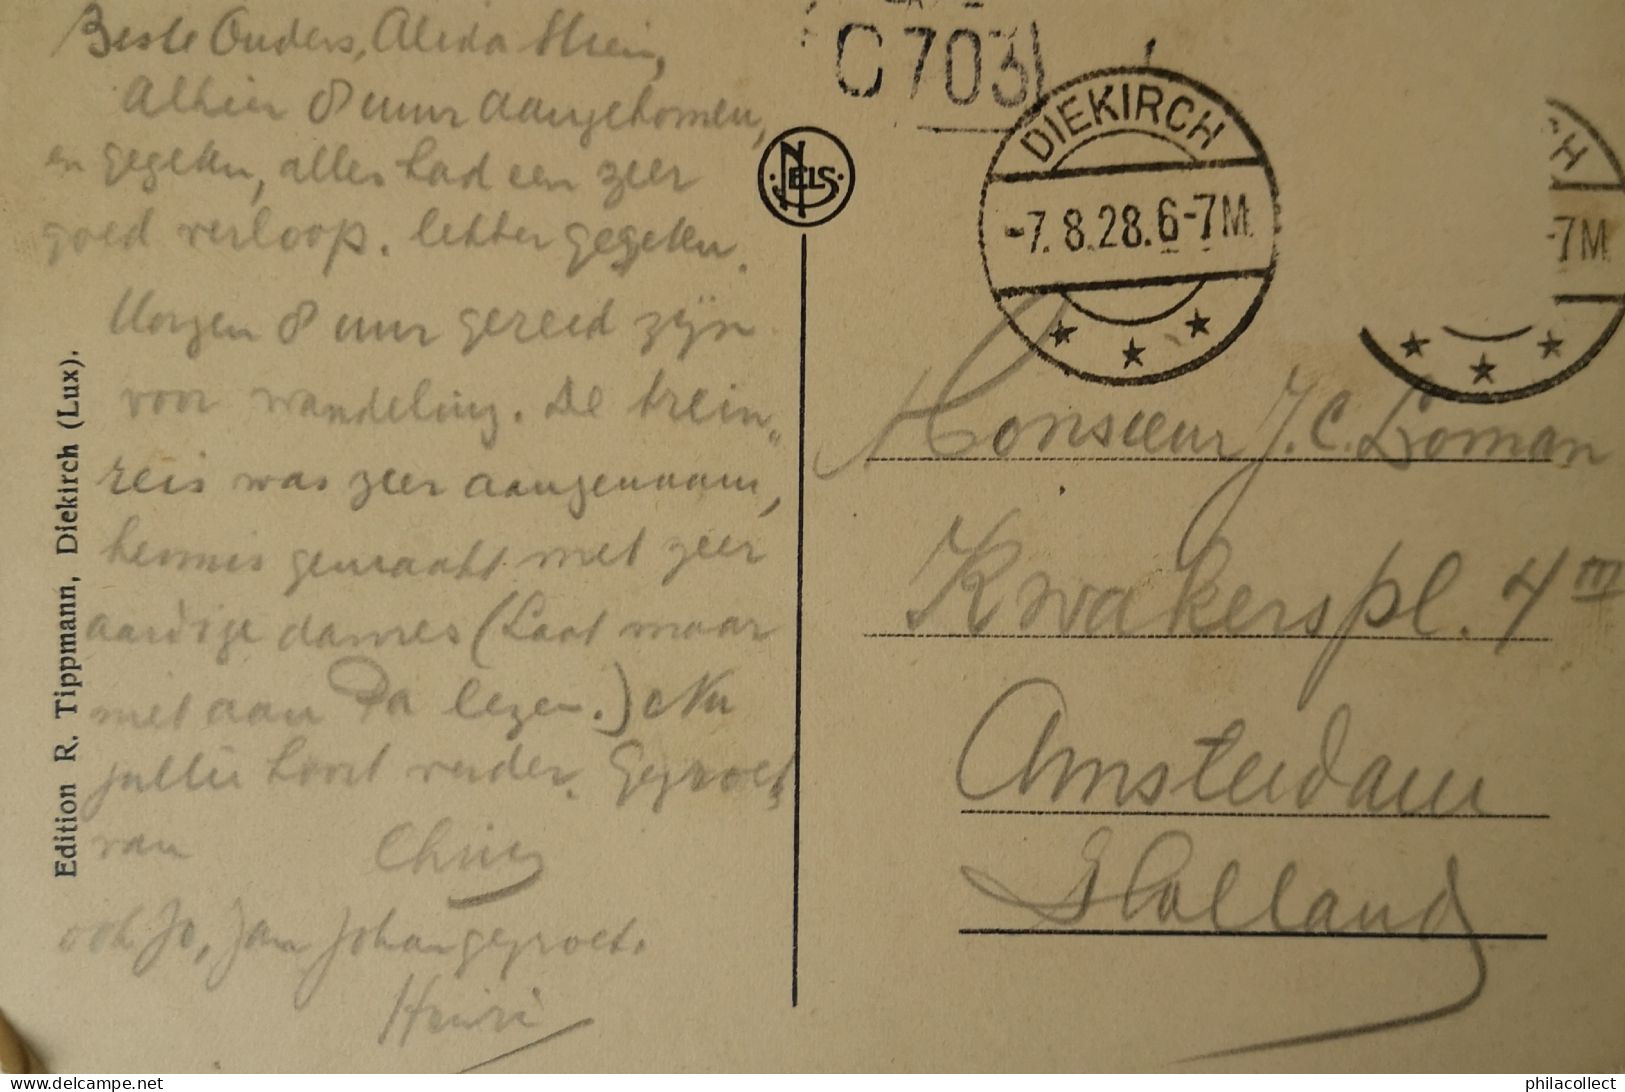 Beste Ouders, Alida Hrein,
Alhier 8 uur aangekomen,
en gegeten, alles had een zeer
goed verloop. lekker gegeten.
Morgen 8 uur gereed zijn
voor wandeling. De trein-
reis was zeer aangenaam,
kennis gemaakt met zeer
aardige dames (Laat maar
niet aan Pa lezen.) Nu
jullie hoort verder. Gegroet,
van
ook Jo, Jan Johan gegroet.
Edition R. Tippmann, Diekirch (Lux).
NELS
C 703
DIEKIRCH
-7.8.28.6-7M.
H
-7M.
Monsieur J. C. Loman
Kwakerspl. 4 III
Amsterdam
Holland
philacollect